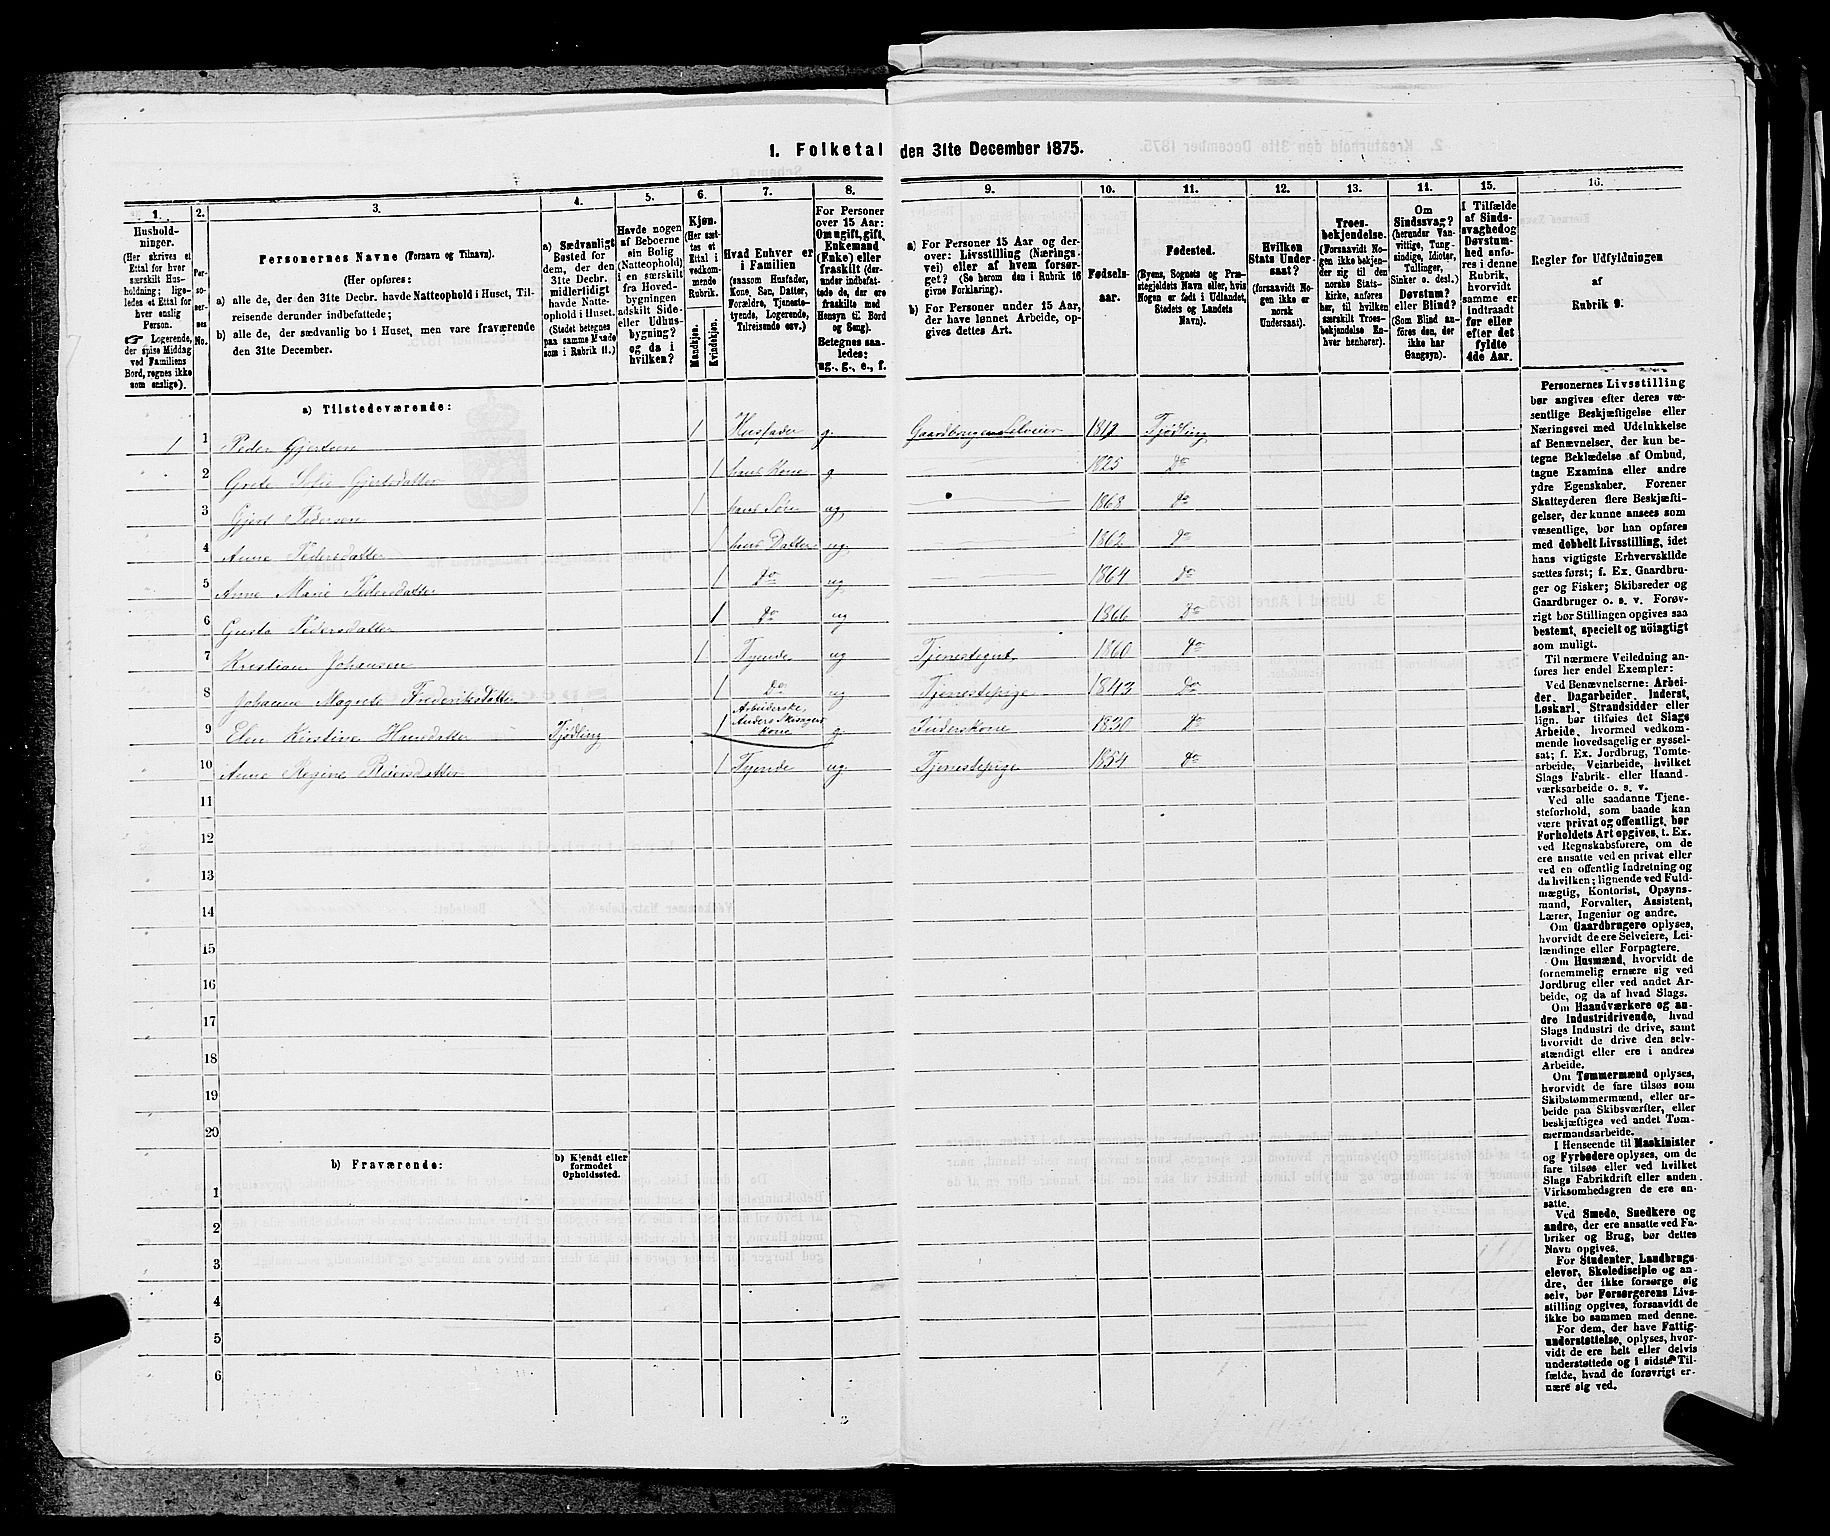 1. Folketal den 31te December 1875.
1. 2. 3. 4. 5. 6. 7. 8. 9. 10. 11. 12. 13. 14. 15. 16.
Husholdninger.
(Her skrives et
Ettal for hver
særskilt Husholdning;
ligeledes et Ettal for
hver enslig
Person.
☞ Logerende,
der spise Middag
ved Familiens
Bord, regnes ikke
som enslige).
Personernes No.
Personernes Navne (Fornavn og Tilnavn).
(Her opføres:
a) alle de, der den 31te Decbr. havde Natteophold i Huset, Tilreisende derunder indbefattede;
b) alle de, der sædvanlig bo i Huset, men vare fraværende
den 31te December.
a) Sædvanligt
Bosted for
dem, der den
31te Decbr.
midlertidigt
havde Natteophold i Huset.
(Stedet betegnes
paa samme Maade
som i Rubrik 11.)
Havde nogen
af Beboerne
sin Bolig
(Natteophold)
i en særskilt
fra Hovedbygningen
adskilt Side-
eller Udhusbygning?
og da i
hvilken?
Kjøn.
(Her sættes et
Ettal i
vedkommende
Rubrik.
Mandkjøn.
Kvindekjøn.
Hvad Enhver er
i Familien
(saasom Husfader,
Kone, Søn, Datter,
Forældre, Tjenestetyende, Logerende,
Tilreisende osv.)
For Personer
over 15 Aar:
Om ugift, gift,
Enkemand
(Enke) eller
fraskilt (derunder indbefattede de, der ere
fraskilte med
Hensyn til Bord
og Seng).
Betegnes saaledes:
ug., g., e., f.
a) For Personer 15 Aar og derover: Livsstilling (Næringsvei) eller af hvem forsørget? (Se herom den i Rubrik 16
givne Forklaring).
b) For Personer under 15 Aar,
der have lønnet Arbeide, opgives dettes Art.
Fødselsaar.
Fødested.
(Byens, Sognets og Præstegjeldets Navn eller, hvis
Nogen er født i Udlandet,
Stedets og Landets
Navn).
Hvilken
Stats Undersaat?
(forsaavidt Nogen ikke er
norsk
Undersaat).
Troesbekjendelse.
(Forsaavidt Nogen ikke bekjender sig til den
norske Statskirke, anføres
her, til hvilken
særskilt Troesbekjendelse Enhver henhører).
Om
Sindssvag?
(herunder Vanvittige, Tungsindige, Idioter,
Tullinger,
Sinker o. desl.)
Døvstum?
eller Blind?
(Som Blind anføres den, der
ikke har
Gangsyn).
I Tilfælde
af Sindssvaghed og
Døvstumhed anføres i denne
Rubrik,
hvorvidt
samme er
indtraadt
før eller
efter det
fyldte
4de Aar.
Regler for Udfyldningen
af
Rubrik 9.
a) Tilstedeværende:
1 1 Peder Gjertsen 1 Husfader g. Gaardbruger Selveier Tjødling
2 Grete Sofie Gjertsdatter 1 hans Kone g 1825 Do
3 Gjert Pedersen 1 hans Søn ug 1868 do
4 Anne Pedersdatter 1 hans Datter ug 1862 do
5 Anne Marie Pedersdatter 1 do ug 1864 do
6 Gusta Pedersdatter 1 do ug 1866 Do
7 Kristian Johansen 1 Tyende ug Tjenestegut 1860 do
8 Johanne Magrete Frederiksdatter 1 Do ug Tjenestepige 1843 Do
9 Elen Kirstine Hansdatter Tjødling 1 Arbeiderske, Anders kone g. Inderskone 1830 do
10 Anne Regine Reiersdatter 1 Tyende ug Tjenestepige 1854 do
11
12
13
14
15
16
17
18
19
20
b) Fraværende:
b) Kjendt eller
formodet
Opholdssted.
1
2
3
4
5
6
Personernes Livsstilling
bør angives efter deres væsentlige Beskjæftigelse eller
Næringsvei med Udelukkelse
af Benævnelser, der kun betegne Beklædelse af Ombud,
tagne Examina eller andre
ydre Egenskaber. Forener
Skatteyderen flere Beskjæftigelser, der kunne ansees som
væsentlige, bør han opføres
med dobbelt Livsstilling, idet
hans vigtigste Erhvervskilde
sættes først; f. Ex. Gaardbruger og Fisker; Skibsreder og
Gaardbruger o. s. v. Forøvrigt bør Stillingen opgives saa
bestemt, specielt og nöiagtigt
som muligt.
Til nærmere Veiledning anføres her endel Exempler:
Ved Benævnelserne: Arbeider, Dagarbeider, Inderst,
Løskarl, Strandsidder eller
lign. bør tilføies det Slags
Arbeide, hvormed vedkommende hovedsagelig er sysselsat; f. Ex. Jordbrug, Tomtearbeide, Veiarbeide, hvilket
Slags Fabrik- eller Haandværksarbeide o. s. v.
Ved alle saadanne Tjenesteforhold, som baade kan
være privat og offentligt, bør
Forholdets Art opgives, t. Ex.
ved Regnskabsførere, om de
ere ansatte ved en privat eller
ved en offentlig Indretning og
da hvilken; lignende ved Fuldmægtig, Kontorist, Opsynsmand, Forvalter, Assistent,
Lærer, Ingeniur og andre.
Om Gaardbrugere oplyses,
hvorvidt de ere Selveiere, Leilændinge eller Forpagtere.
Om Husmænd, hvorvidt de
fornemmelig ernære sig ved
Jordbrug eller ved andet Arbeide, og da af hvad Slags.
Om Haandværkere og andre Industridrivende, hvad
Slags Industri de drive, samt
hvorvidt de drive den selvstændigt eller ere i andres
Arbeide.
Om Tømmermænd oplyses,
hvorvidt de fare tilsøs som
Skibstømmermænd, eller arbeide paa Skibsværfter, eller
beskjæftiges ved andet Tømmermandsarbeide.
I Henseende til Maskinister
og Fyrbødere oplyses, om de
fare tilsøs eller ved hvilket
Slags Fabrikdrift eller anden
Virksomhedsgren de ere ansatte.
Ved Smede, Snedkere og
andre, der ere ansatte ved Fabriker og Brug, bør dettes
Navn opgives.
For Studenter, Landbrugselever, Skoledisciple og andre, der ikke forsørge sig
selv, bør Forsørgerens Livsstilling opgives, forsaavidt de
ikke bo sammen med denne.
For dem, der have Fattigunderstøttelse, oplyses, hvorvidt de ere helt eller delvis
understøttede og i sidste Tilfælde, hvad de forøvrigt ernære sig ved.